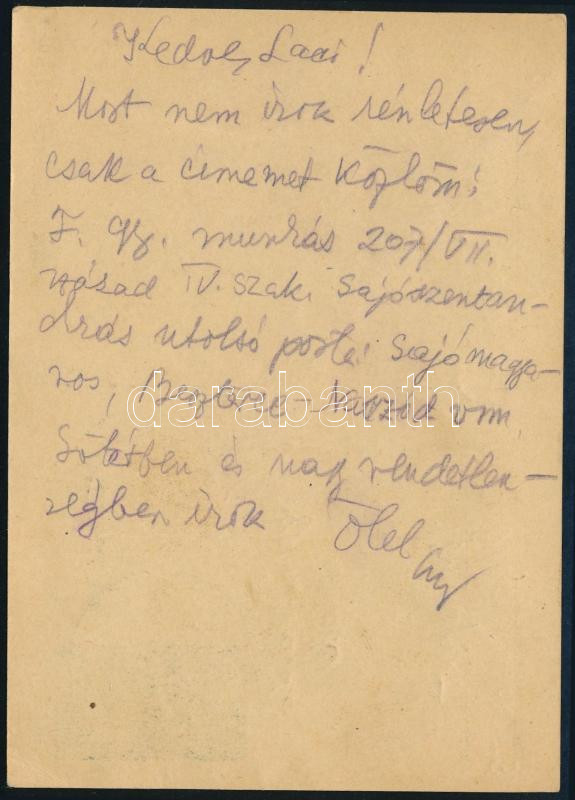 Kedves Laci!
Most nem irok részletesen,
csak a címemet közlöm:
F. Gy. munkás 207/VII.
század IV. szak. Sajószentan-
drás utolsó posta: Sajómagya-
ros, Beszterce-Naszód vm.
Sötétben és nagy rendetlen-
ségben irok Ölel
Gy
darabanth.com